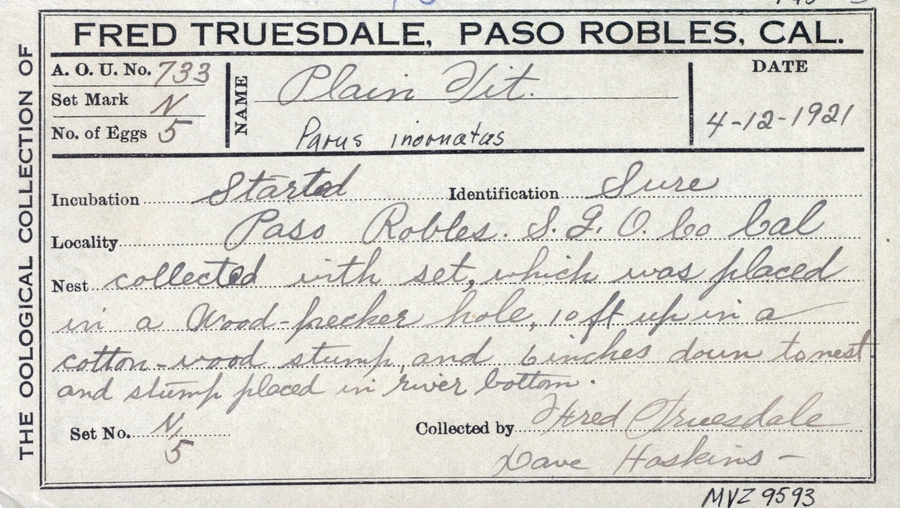 FRED TRUESDALE, PASO ROBLES, CAL.
THE OOLOGICAL COLLECTION OF
A. O. U. No. 733
Set Mark N
No. of Eggs 5
NAME Plain Tit.
Parus inornatus
DATE
4-12-1921
Incubation Started Identification Sure
Locality Paso Robles. S. L. O. Co Cal
Nest collected with set, which was placed
in a Wood-pecker hole, 10 ft up in a
cotton-wood stump, and 6 inches down to nest
and stump placed in river bottom.
Set No. N/5 Collected by Fred Truesdale
Dave Hoskins -
MVZ 9593